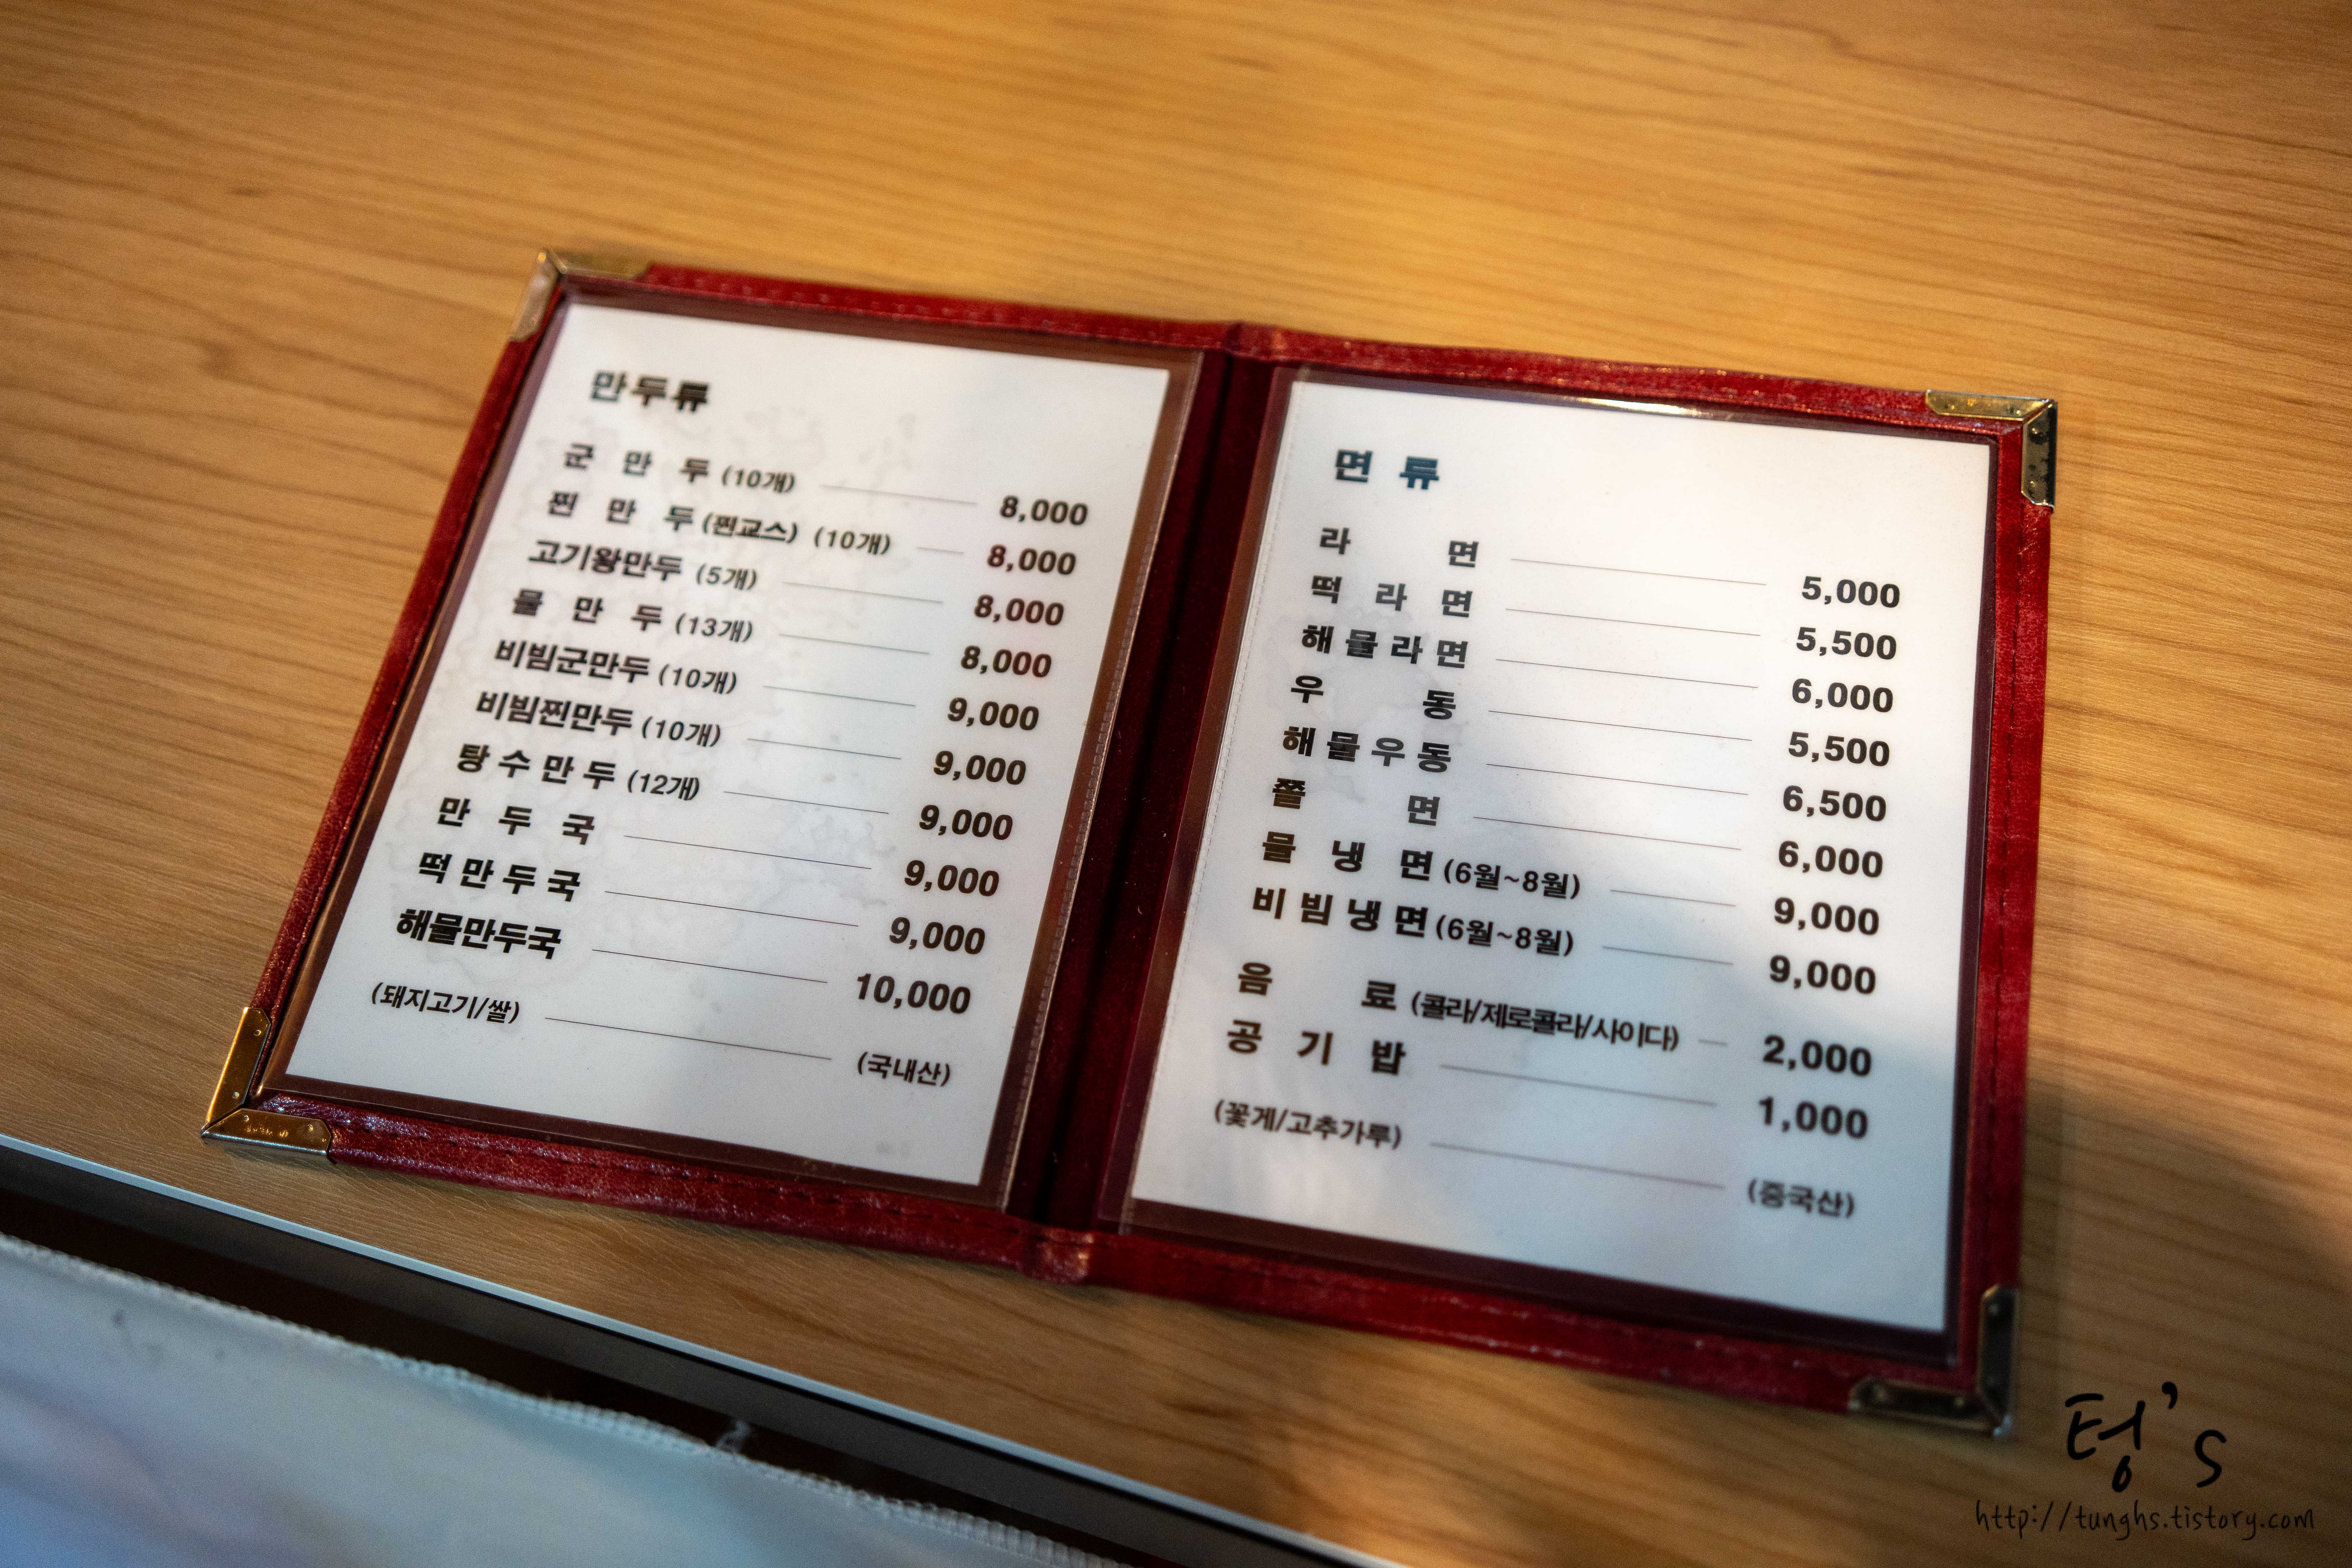 만두류
군 만 두 (10개) 8,000
찐 만 두 (찐교스) (10개) 8,000
고기왕만두 (5개) 8,000
물 만 두 (13개) 8,000
비빔군만두 (10개) 9,000
비빔찐만두 (10개) 9,000
탕 수 만 두 (12개) 9,000
만 두 국 9,000
떡 만 두 국 9,000
해물만두국 10,000
(돼지고기/쌀) (국내산)
면 류
라 면 5,000
떡 라 면 5,500
해 물 라 면 6,000
우 동 5,500
해 물 우 동 6,500
쫄 면 6,000
물 냉 면 (6월~8월) 9,000
비 빔 냉 면 (6월~8월) 9,000
음 료 (콜라/제로콜라/사이다) 2,000
공 기 밥 1,000
(꽃게/고추가루) (중국산)
텅's
http://tunghs.tistory.com